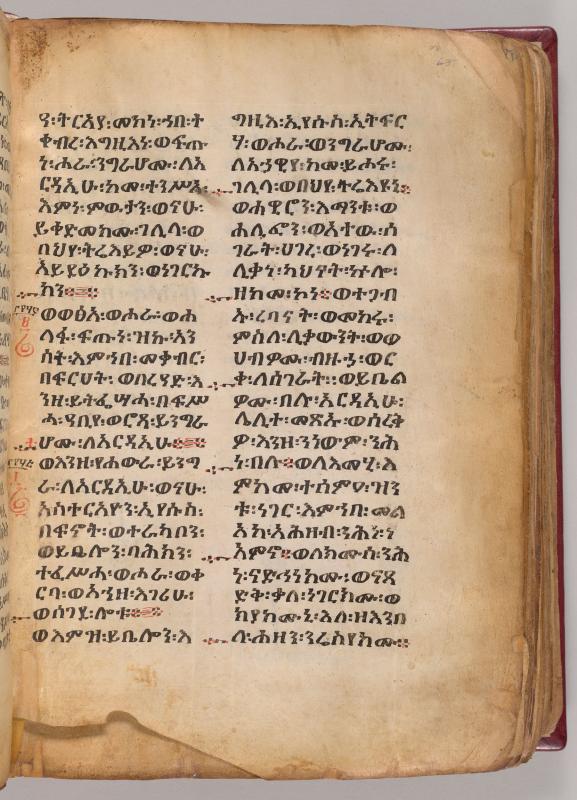 ዓ፡ትርአያ፡መካነ፡ኀበ፡ት
ቀብረ፡እግዚእነ፡ወፍጡ
ነ፡ሑራ፡ንግራሆሙ፡ለአ
ርዳኢሁ፡ከመ፡ተንሥአ፡
እምነ፡ምውታን፡ወናሁ፡
ይቀድመክሙ፡ገሊላ፡ወ
በህየ፡ትሬእይዎ፡ወናሁ፡
አይዳዕኩክን፡ወነገርኩ
ክን
ወወፅአ፡ወሖራ፡ወሐ
ለፋ፡ፍጡነ፡ዝኩ፡አን
ስት፡እምኀበ፡መቃብር፡
በፍርሀት፡ወበረዓድ፡እ
ንዘ፡ይትፌሣሓ፡በፍሥ
ሓ፡ዓቢየ፡ወሮጻ፡ይንግራ
ሆሙ፡ለአርዳኢሁ
ወእንዘ፡የሐውራ፡ይንግ
ራ፡ለአርዳኢሁ፡ወናሁ፡
አስተርአዮን፡ኢየሱስ፡
በፍኖት፡ወተራከቦን፡
ወይቤሎን፡ባሕክን፡
ተፈሥሓ፡ወሖራ፡ወቀ
ርባ፡ወአኀዘ፡እገሪሁ፡
ወሰገደ፡ሎቱ
ወእምዝ፡ይቤሎን፡እ
ግዚእ፡ኢየሱስ፡ኢትፍር
ሃ፡ወሑራ፡ወንግራሆሙ፡
ለአኃዊየ፡ከመ፡ይሑሩ፡
ገሊላ፡ወበህየ፡ትሬእዩኒ
ወሐዊሮን፡እማንቱ፡ወ
ሐሊፎን፡ወአተው፡ሰ
ገራት፡ሀገረ፡ወነገሩ፡ለ
ሊቃነ፡ካህናት፡ኵሎ፡
ዘከመ፡ኮነ፡ወተጋብ
ኡ፡ረበናት፡ወመከሩ፡
ምስለ፡ሊቃውንት፡ወወ
ሀብዎሙ፡ብዙኀ፡ወር
ቀ፡ለሰገራት፡፡ወይቤል
ዎሙ፡በሉ፡አርዳኢሁ፡
ሌሊተ፡መጽኡ፡ወሰረቅ
ዎ፡እንዘ፡ንነውም፡ንሕ
ነ፡በሉ፡ወለእመሂ፡ለ
ምከመ፡ተሰምዐ፡ዝን
ቱ፡ነገር፡እምኀበ፡መል
አከ፡አሕዛብ፡ንሕነ፡ነ
አምኖ፡ወለክሙሰ፡ንሕ
ነ፡ናድኅነክሙ፡ወናጸ
ድቅ፡ቃለ፡ነገርክሙ፡ወ
ክያክሙኒ፡አለ፡ዘእንበ
ለ፡ሐዘን፡ንሬስየክሙ፡፡